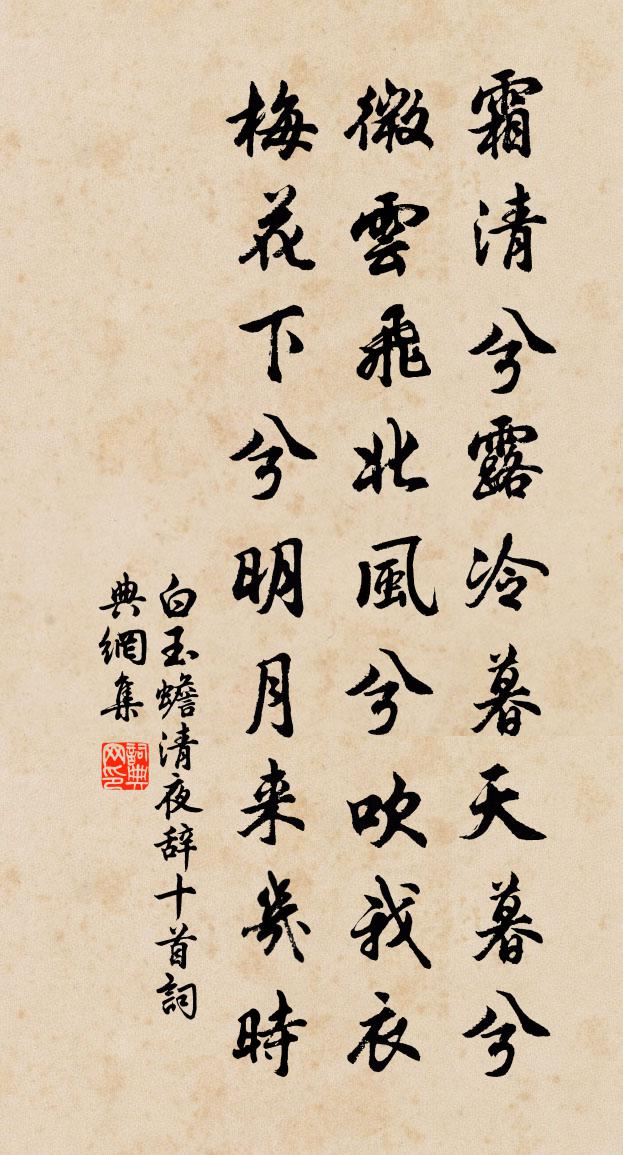 霜清兮露冷暮天暮兮
微雲飛北風兮吹我衣
梅花下兮明月来幾時
白玉蟾清夜辞十首詞
典網集
詞典網印